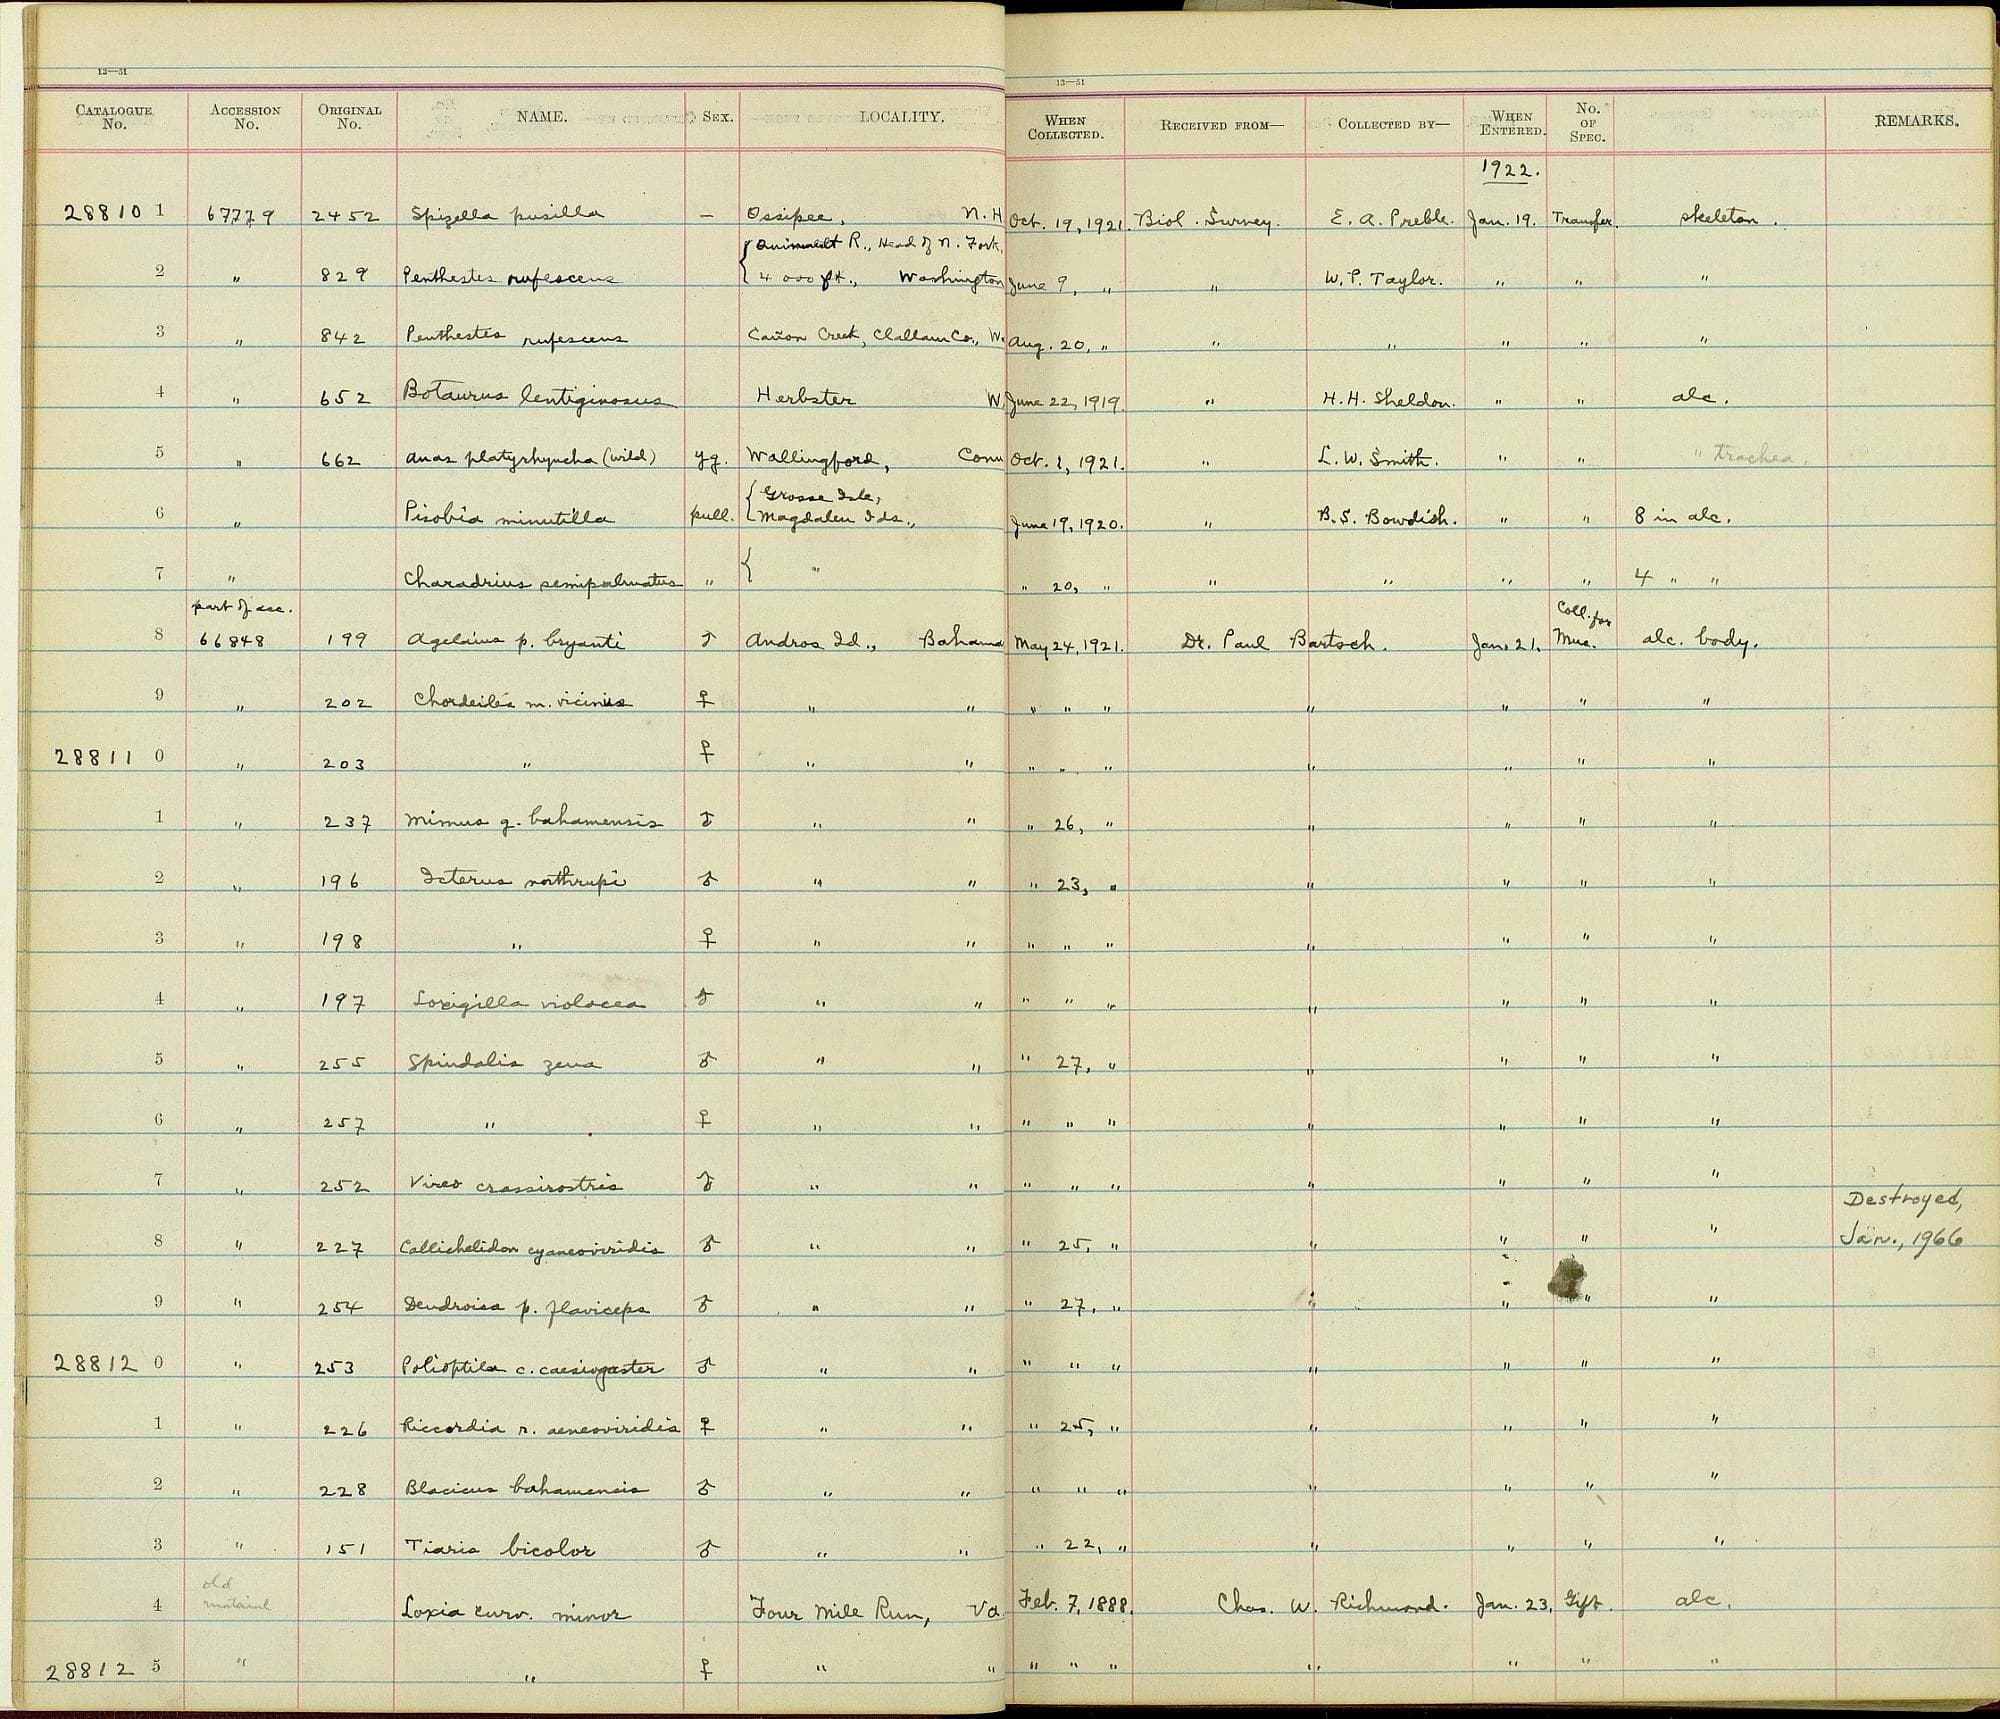 13—51
13—51
CATALOGUE No. ACCESSION No. ORIGINAL No. NAME. SEX. LOCALITY. WHEN COLLECTED. RECEIVED FROM— COLLECTED BY— WHEN ENTERED. No. OF SPEC. REMARKS.
1922.
28810 1 67779 2452 Spizella pusilla – Ossipee, N.H Oct. 19, 1921. Biol. Survey. E. A. Preble. Jan. 19. Transfer. skeleton.
R., Head of N. Fork,
2 " 829 Penthestes rufescens 4000 ft., Washington June 9, " " W. P. Taylor. " " "
3 " 842 Penthestes rufescens Cañon Creek, Clallam Co., W. Aug. 20, " " " " " "
4 " 652 Botaurus lentiginosus Herbster W June 22, 1919. " H. H. Sheldon. " " alc.
5 " 662 Anas platyrhyncha (wild) yg. Wallingford, Conn Oct. 1, 1921. " L. W. Smith. " " " trachea.
Grosse Isle,
6 " Pisobia minutilla pull. Magdalen Ids., June 19, 1920. " B. S. Bowdish. " " 8 in alc.
7 " Charadrius semipalmatus " " " 20, " " " " " 4 " "
part of acc. Coll. for
8 66848 199 Agelaius p. bryanti ♂ Andros Id., Bahama May 24, 1921. Dr. Paul Bartsch. Jan. 21. Mus. alc. body.
9 " 202 Chordeiles m. vicinus ♀ " " " " " " " " "
28811 0 " 203 " ♀ " " " " " " " " "
1 " 237 Mimus g. bahamensis ♂ " " " 26, " " " " "
2 " 196 Icterus northrupi ♂ " " " 23, " " " " "
3 " 198 " ♀ " " " " " " " " "
4 " 197 Loxigilla violacea ♂ " " " " " " " " "
5 " 255 Spindalis zena ♂ " " " 27, " " " " "
6 " 257 " ♀ " " " " " " " " "
7 " 252 Vireo crassirostris ♂ " " " " " " " " "
Destroyed,
8 " 227 Callichelidon cyaneoviridis ♂ " " " 25, " " " " " Jan., 1966
9 " 254 Dendroica p. flaviceps ♂ " " " 27, " " " " "
28812 0 " 253 Polioptila c. caesiogaster ♂ " " " " " " " " "
1 " 226 Riccordia r. aeneoviridis ♀ " " " 25, " " " " "
2 " 228 Blacicus bahamensis ♂ " " " " " " " " "
3 " 151 Tiaris bicolor ♂ " " " 22, " " " " "
old
4 material Loxia curv. minor Four Mile Run, Va. Feb. 7, 1888. Chas. W. Richmond. Jan. 23, Gift. alc.
28812 5 " " ♀ " " " " " " " " "